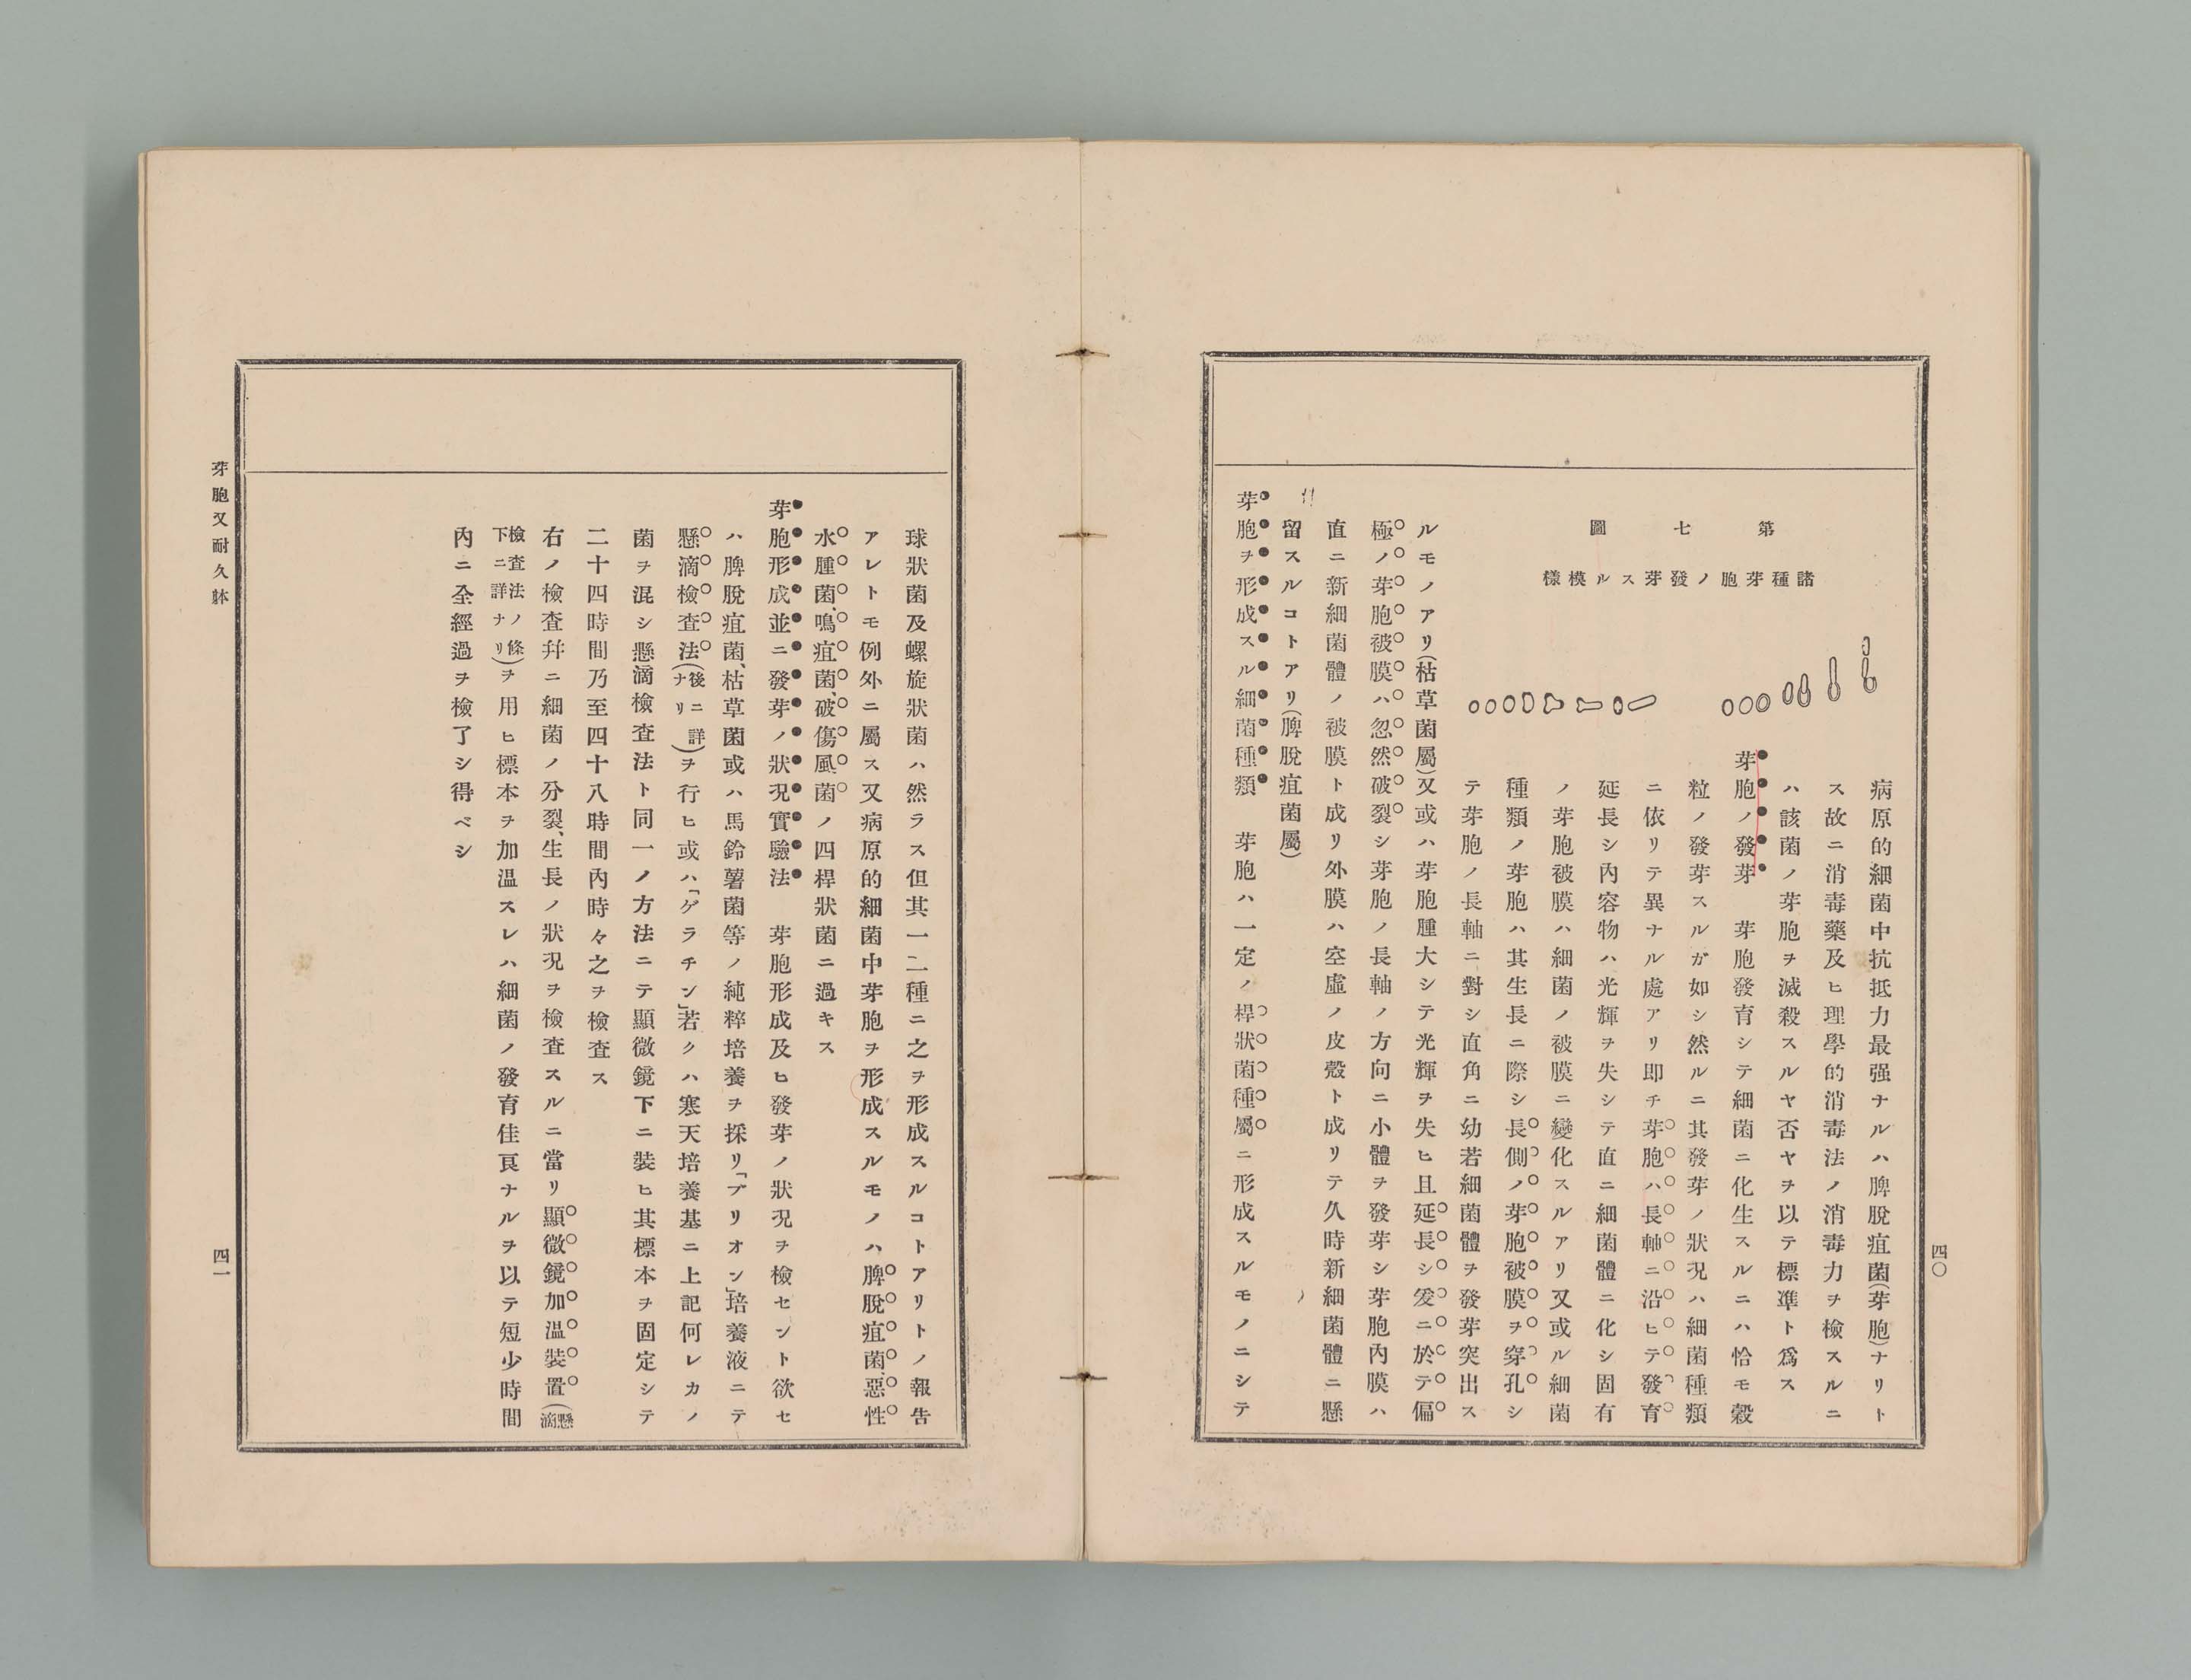 第七圖
諸種芽胞ノ發芽スル模樣
病原的細菌中抗抵力最强ナルハ脾脫疽菌(芽胞)ナリト
ス故ニ消毒藥及ヒ理學的消毒法ノ消毒力ヲ檢スルニ
ハ該菌ノ芽胞ヲ滅殺スルヤ否ヤヲ以テ標準ト爲ス
芽胞ノ發芽　芽胞發育シテ細菌ニ化生スルニハ恰モ穀
粒ノ發芽スルガ如シ然ルニ其發芽ノ狀況ハ細菌種類
ニ依リテ異ナル處アリ即チ芽胞ハ長軸ニ沿ヒテ發育
延長シ內容物ハ光輝ヲ失シテ直ニ細菌體ニ化シ固有
ノ芽胞被膜ハ細菌ノ被膜ニ變化スルアリ又或ル細菌
種類ノ芽胞ハ其生長ニ際シ長側ノ芽胞被膜ヲ穿孔シ
テ芽胞ノ長軸ニ對シ直角ニ幼若細菌體ヲ發芽突出ス
ルモノアリ(枯草菌屬)又或ハ芽胞腫大シテ光輝ヲ失ヒ且延長シ爰ニ於テ偏
極ノ芽胞被膜ハ忽然破裂シ芽胞ノ長軸ノ方向ニ小體ヲ發芽シ芽胞內膜ハ
直ニ新細菌體ノ被膜ト成リ外膜ハ空虛ノ皮殼ト成リテ久時新細菌體ニ懸
留スルコトアリ(脾脫疽菌屬)
芽胞ヲ形成スル細菌種類　芽胞ハ一定ノ桿狀菌種屬ニ形成スルモノニシテ
四〇
球狀菌及螺旋狀菌ハ然ラス但其一二種ニ之ヲ形成スルコトアリトノ報告
アレトモ例外ニ屬ス又病原的細菌中芽胞ヲ形成スルモノハ脾脫疽菌、惡性
水腫菌、鳴疽菌、破傷風菌ノ四桿狀菌ニ過キス
芽胞形成並ニ發芽ノ狀況實驗法　芽胞形成及ヒ發芽ノ狀況ヲ檢セント欲セ
ハ脾脫疽菌、枯草菌或ハ馬鈴薯菌等ノ純粹培養ヲ採リ「ブリオン」培養液ニテ
懸滴檢查法(後ニ詳ナリ)ヲ行ヒ或ハ「ゲラチン」若クハ寒天培養基ニ上記何レカノ
菌ヲ混シ懸滴檢查法ト同一ノ方法ニテ顯微鏡下ニ裝ヒ其標本ヲ固定シテ
二十四時間乃至四十八時間內時々之ヲ檢查ス
右ノ檢查幷ニ細菌ノ分裂、生長ノ狀況ヲ檢查スルニ當リ顯微鏡加溫裝置(懸滴
檢查法ノ條下ニ詳ナリ)ヲ用ヒ標本ヲ加溫スレハ細菌ノ發育佳良ナルヲ以テ短少時間
內ニ全經過ヲ檢了シ得ベシ
芽胞又耐久躰
四一